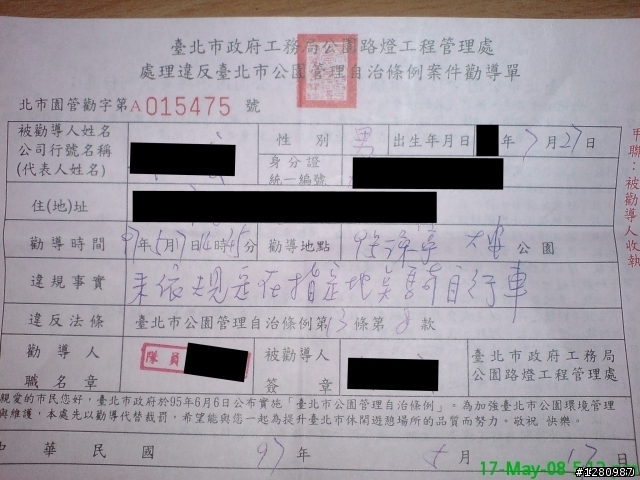 臺北市政府工務局公園路燈工程管理處
處理違反臺北市公園管理自治條例案件勸導單
北市園管勸字第A015475號
甲聯：被勸導人收執
被勸導人姓名
公司行號名稱
(代表人姓名)
性別 男 出生年月日 年7月27日
身分證
統一編號
住(地)址
勸導時間 97年5月17日14時45分 勸導地點 大安公園
違規事實 未依規定在指定地點騎自行車
違反法條 臺北市公園管理自治條例第13條第8款
勸導人
職名章
隊員
被勸導人
簽章
臺北市政府工務局
公園路燈工程管理處
親愛的市民您好，臺北市政府於95年6月6日公布實施「臺北市公園管理自治條例」。為加強臺北市公園環境管理
與維護，本處先以勸導代替裁罰，希望能與您一起為提升臺北市休閒遊憩場所的品質而努力。敬祝 快樂。
中華民國 97年 5月 17日
17-May-08
#1280987